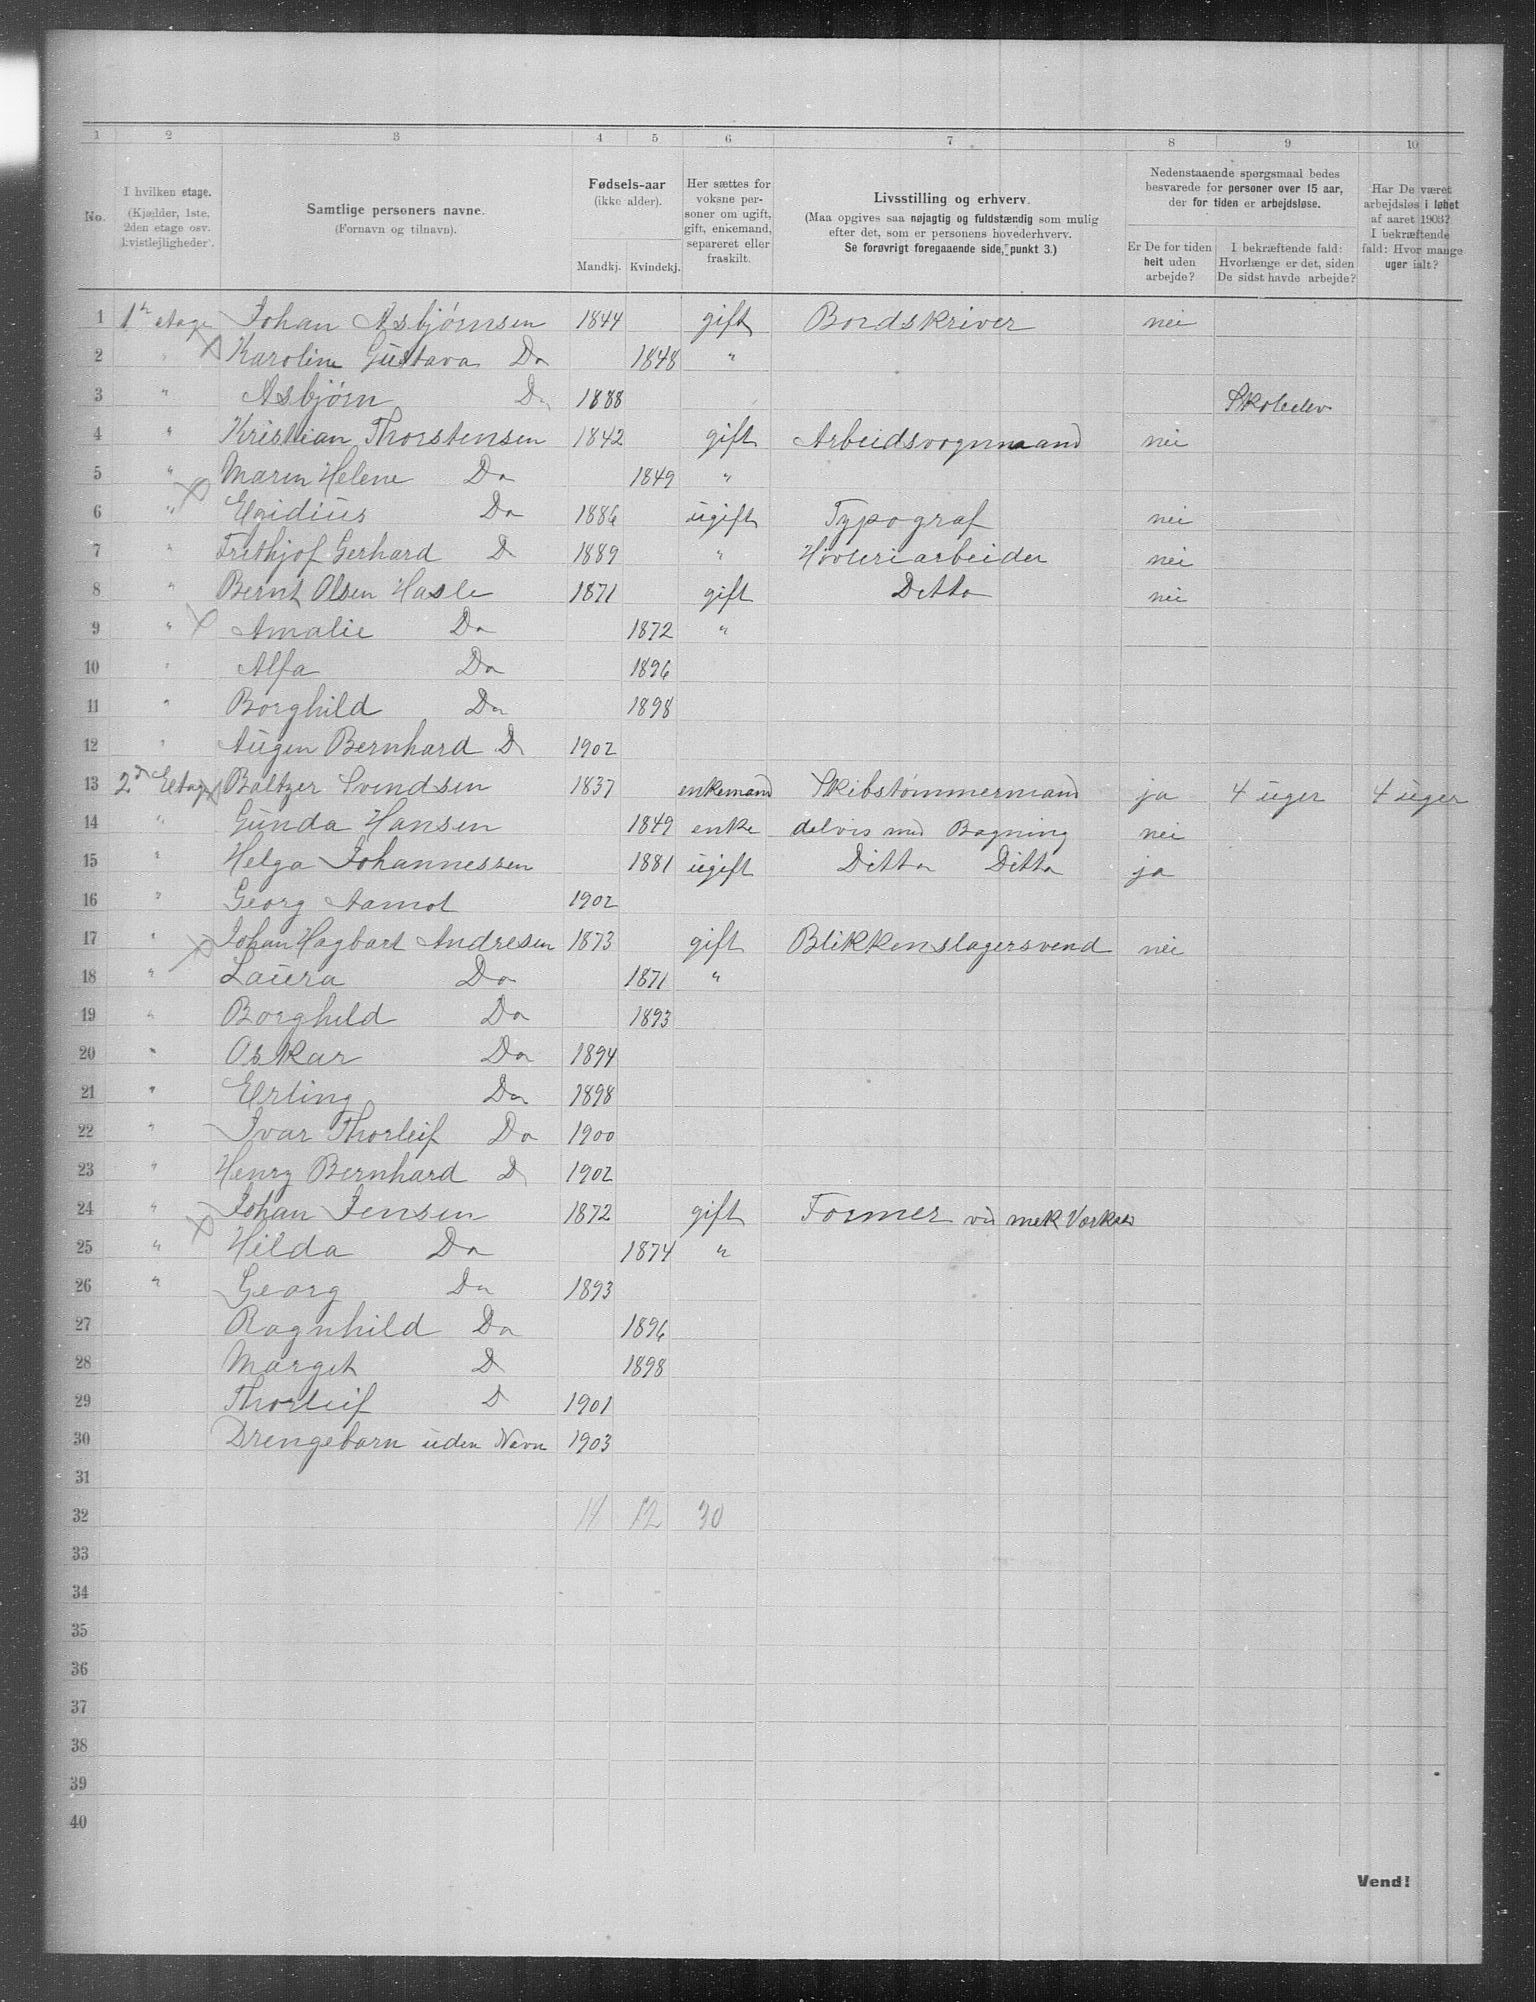 1 2 3 4 5 6 7 8 9 10
No.
I hvilken etage.
(Kjælder, 1ste, 2den etage osv. kvistlejligheder).
Samtlige personers navne.
(Fornavn og tilnavn).
Fødsels-aar
(ikke alder).
Mandkj. Kvindekj.
Her sættes for voksne personer om ugift, gift, enkemand, separeret eller fraskilt.
Livsstilling og erhverv.
(Maa opgives saa nøjagtig og fuldstændig som mulig efter det, som er personens hovederhverv.
Se forøvrigt foregaaende side, punkt 3.)
Nedenstaaende spørgsmaal bedes besvarede for personer over 15 aar, der for tiden er arbejdsløse.
Er De for tiden heit uden arbejde?
I bekræftende fald: Hvorlænge er det, siden De sidst havde arbejde?
Har De været arbejdsløs i løbet af aaret 1903?
I bekræftende fald: Hvor mange uger ialt?
1 1ste etage Johan Asbjørnsen 1844 gift Bordskriver nei
2 " Karoline Gustava Do 1848 "
3 " Asbjørn Do 1888 Skoleelev
4 " Kristian Thorstensen 1842 gift Arbeidsvognmand nei
5 " Maren Helene Do 1849 "
6 " Egidius Do 1886 ugift Typograf nei
7 " Frithjof Gerhard D 1889 " Høvleriarbeider nei
8 " Bernt Olsen Hasle 1871 gift Ditto nei
9 " Amalie Do 1872 "
10 " Alfa Do 1896
11 " Borghild Do 1898
12 " Augen Bernhard D 1902
13 2d Etage Baltzer Svendsen 1837 enkemand Skibstømmermand ja 4 uger 4 uger
14 " Gunda Hansen 1849 enke delvis med Bagning nei
15 " Helga Johannessen 1881 ugift Ditto Ditto ja
16 " Georg Aamot 1902
17 " Johan Hagbart Andresen 1873 gift Blikkenslagersvend nei
18 " Laura Do 1871 "
19 " Borghild Do 1893
20 " Oskar Do 1894
21 " Erling Do 1898
22 " Ivar Thorleif Do 1900
23 " Henry Bernhard D 1902
24 " Johan Jensen 1872 gift Former ved mek Værksted
25 " Hilda Do 1874 "
26 " Georg Do 1893
27 Ragnhild Do 1896
28 Marget D 1898
29 Thorleif D 1901
30 Drengebarn uden Navn 1903
31
32 12 30
33
34
35
36
37
38
39
40
Vend!